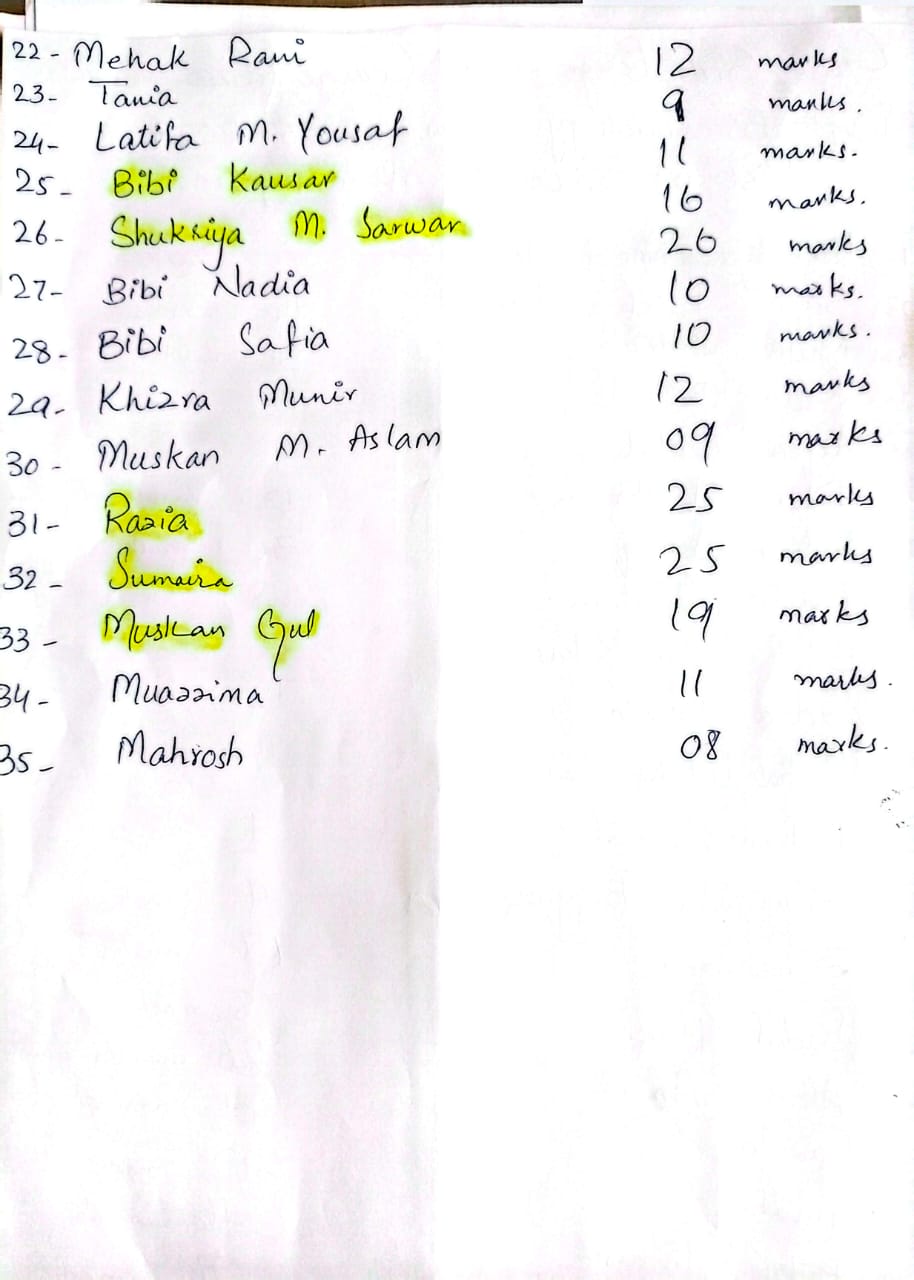 22- Mehak Rani 12 marks
23- Tania 9 marks.
24- Latifa M. Yousaf 11 marks.
25- Bibi Kausar 16 marks.
26- Shukriya M. Sarwar 26 marks
27- Bibi Nadia 10 marks.
28- Bibi Safia 10 marks.
29- Khizra Munir 12 marks
30- Muskan M. Aslam 09 marks
31- Razia 25 marks
32- Sumaira 25 marks
33- Muskan Gul 19 marks
34- Muazzima 11 marks.
35- Mahrosh 08 marks.